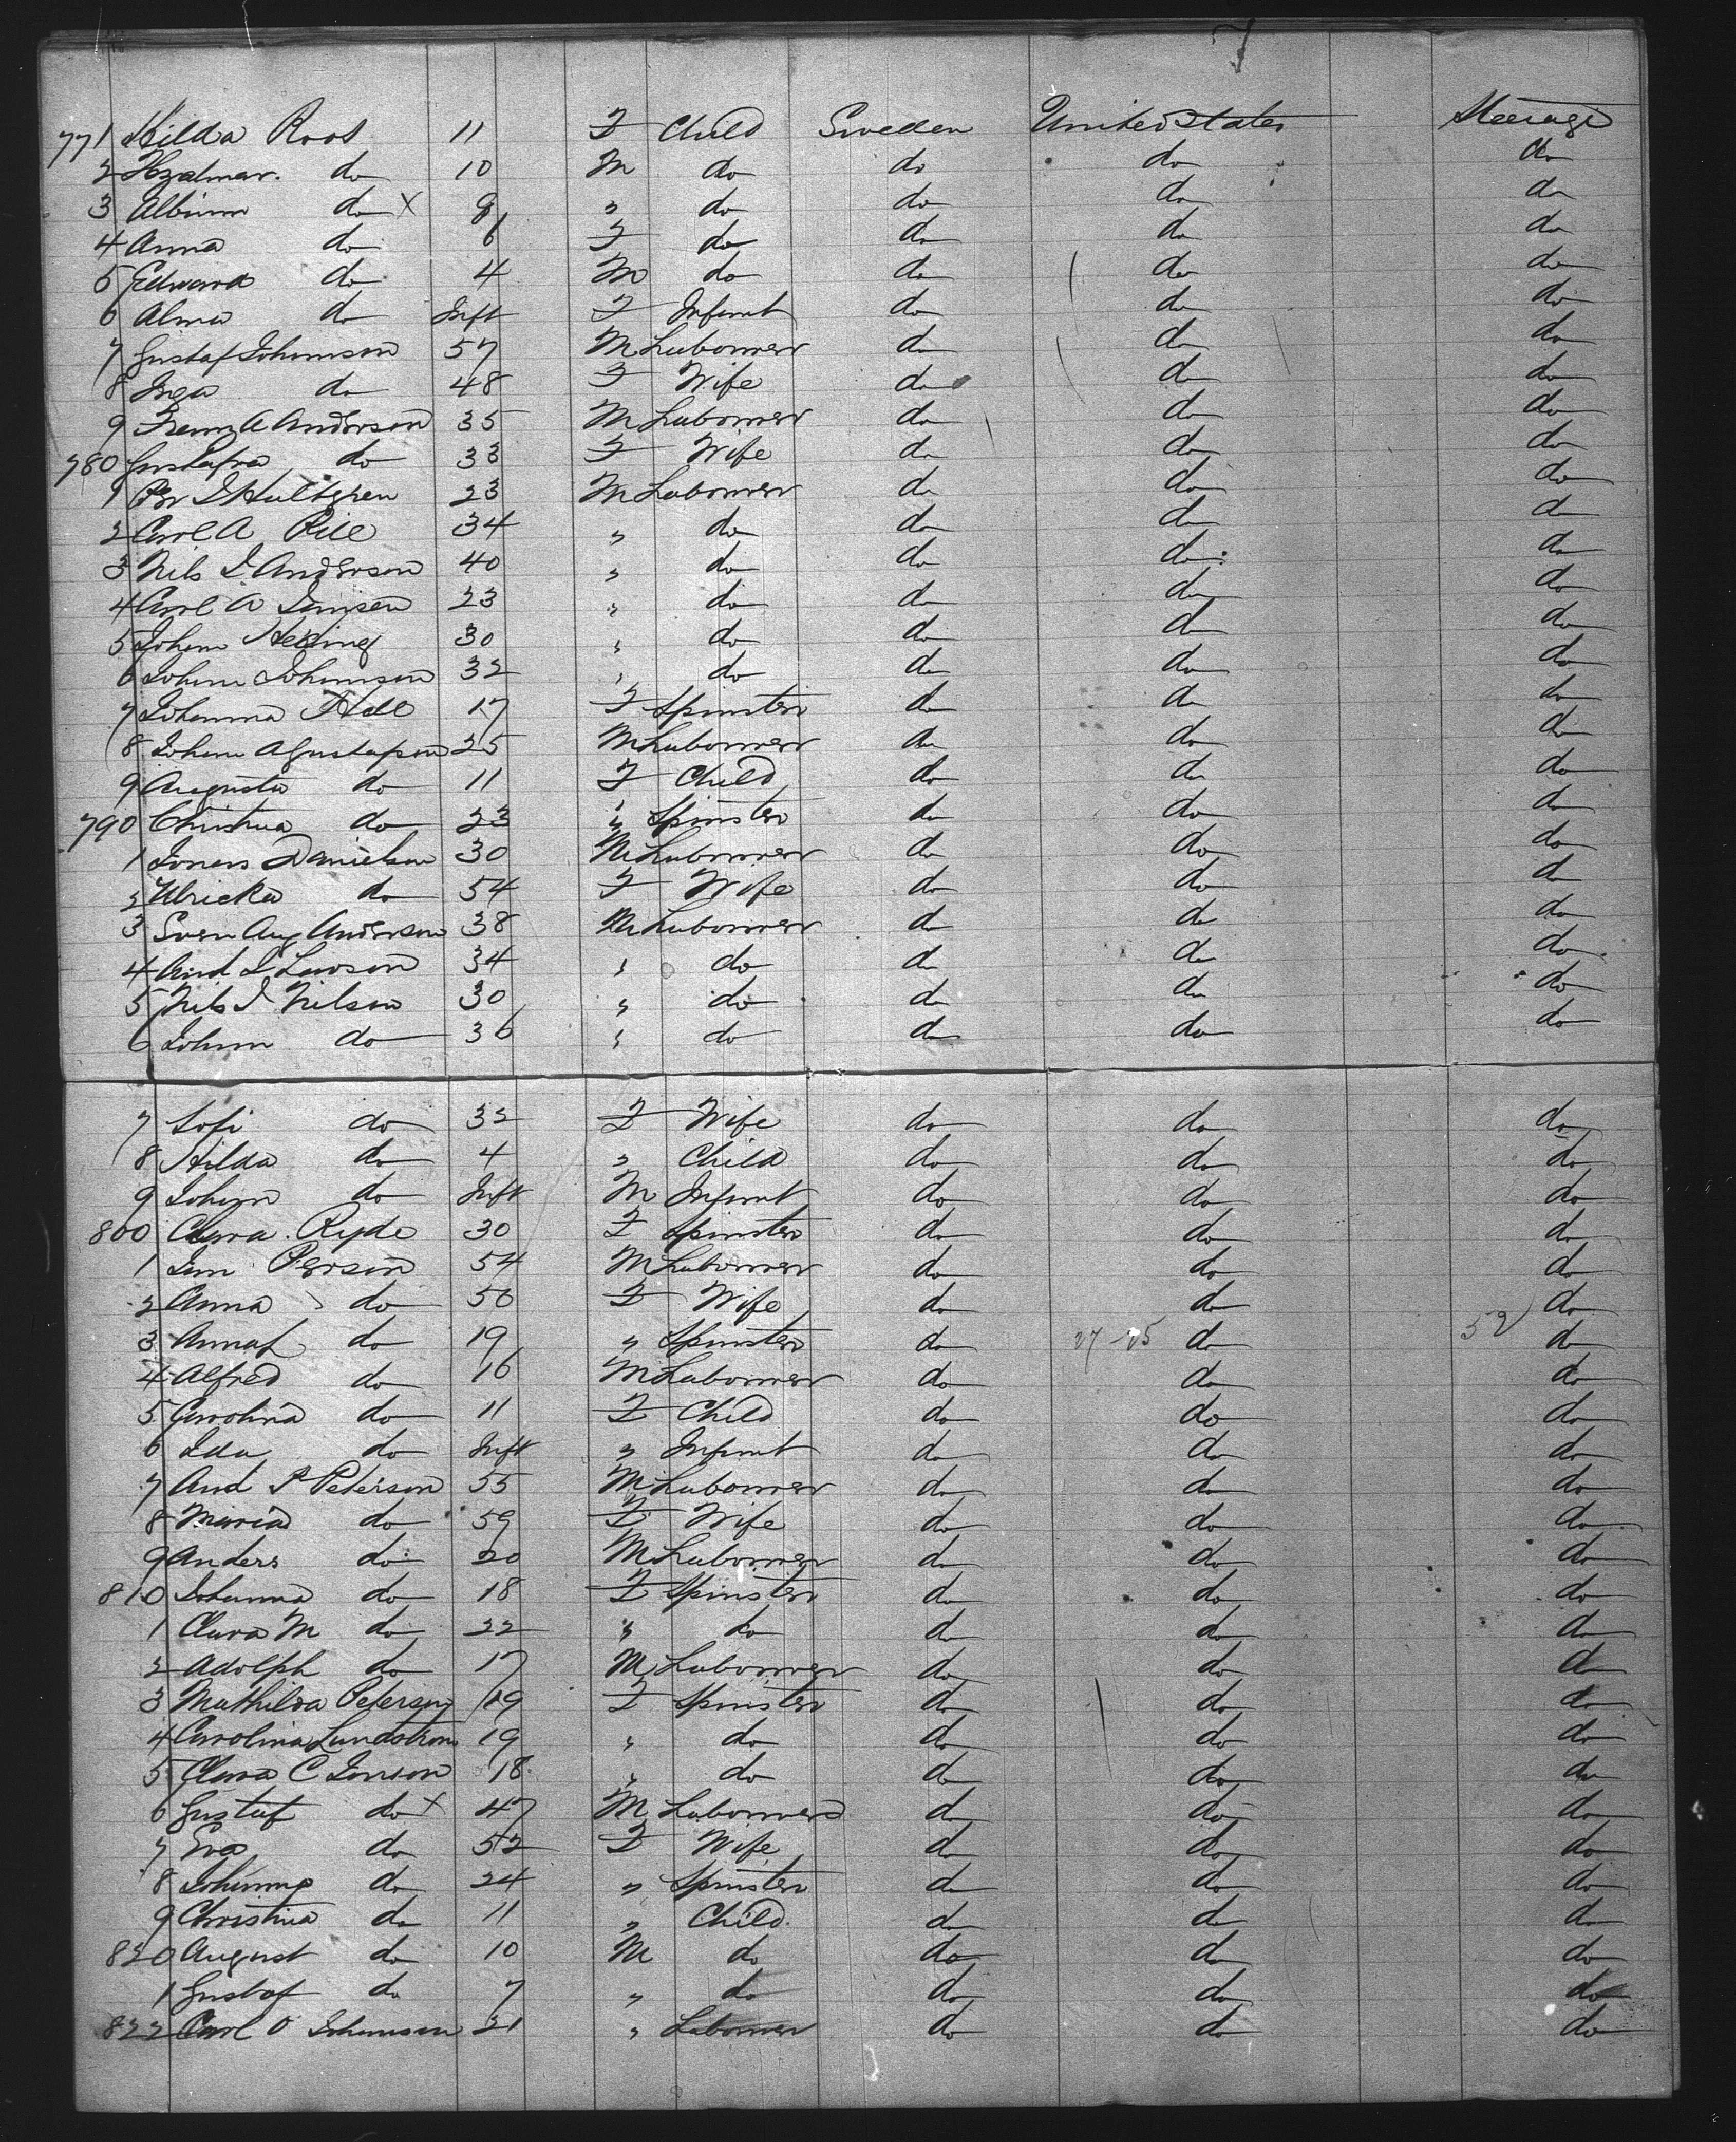 7
771 Hilda Roos 11 F Child Sweden United States Steerage
2 Hjalmar do 10 M do do do do
3 Albinn do X 8 " do do do do
4 Anna do 6 F do do do do
5 Edward do 4 M do do do do
6 Alma do Inft F Infant do do do
7 Gustaf Johannson 57 M Labourer do do do
8 Inga do 48 F Wife do do do
9 A Anderson 35 M Labourer do do do
780 Gustafva do 33 F Wife do do do
1 Per I Hultgren 23 M Labourer do do do
2 Carl A 34 " do do do do
3 Nils I Anderson 40 " do do do do
4 Carl A 23 " do do do do
5 Johan 30 " do do do do
6 Johan Johannson 32 " do do do do
7 Johanna 17 F Spinster do do do
8 Johan A Gustafson 25 M Labourer do do do
9 Augusta do 11 F Child do do do
790 Christina do 23 " Spinster do do do
1 Jonas Danielson 30 M Labourer do do do
2 Ulricka do 54 F Wife do do do
3 Sven Aug Anderson 38 M Labourer do do do
4 And I Lawson 34 " do do do do
5 Nils I Nilson 30 " do do do do
6 Johan do 36 " do do do do
7 Sofi do 32 F Wife do do do
8 Hilda do 4 " Child do do do
9 Johan do Inft M Infant do do do
800 Clara Ryde 30 F Spinster do do do
1 Person 54 M Labourer do do do
2 Anna do 50 F Wife do do do
3 do 19 " Spinster do 27-25 do 52 do
4 Alfred do 16 M Labourer do do do
5 Carolina do 11 F Child do do do
6 Ida do Inft " Infant do do do
7 And P Peterson 55 M Labourer do do do
8 Maria do 59 F Wife do do do
9 Anders do 20 M Labourer do do do
810 Johanna do 18 F Spinster do do do
1 Clara M do 22 " do do do do
2 Adolph do 17 M Labourer do do do
3 Mathilda Peterson 19 F Spinster do do do
4 Carolina Lundstrom 19 " do do do do
5 Clara C Jonson 18 " do do do do
6 Gustaf do X 47 M Labourer do do do
7 Eva do 52 F Wife do do do
8 Johanna do 24 " Spinster do do do
9 Christina do 11 " Child do do do
820 August do 10 M do do do do
1 Gustaf do 7 " do do do do
822 Carl O Johannson 21 " Labourer do do do